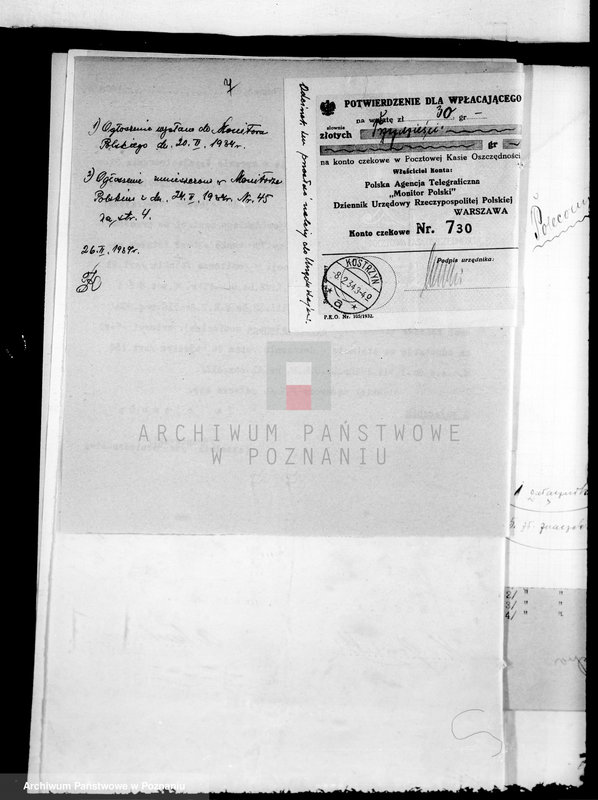 7
1) Ogłoszenie wysłano do Monitora
Polskiego dn. 20.II.1934r.
2) Ogłoszenie umieszczono w Monitorze
Polskim z dn. 24.II.1934r. Nr. 45
na str. 4.
26.II.1934r.
Odcinek ten przesłać należy do
POTWIERDZENIE DLA WPŁACAJĄCEGO
na wpłatę zł 30 gr —
słownie
złotych Trzydzieści
gr —
na konto czekowe w Pocztowej Kasie Oszczędności
Właściciel Konta:
Polska Agencja Telegraficzna
„Monitor Polski"
Dziennik Urzędowy Rzeczypospolitej Polskiej
WARSZAWA
Konto czekowe Nr. 730
Podpis urzędnika:
KOSTRZYN
a
P.K.O. Nr. 105/1932.
2/ " "
3/ " "
4/ " "
ARCHIWUM PAŃSTWOWE
W POZNANIU
Archiwum Państwowe w Poznaniu